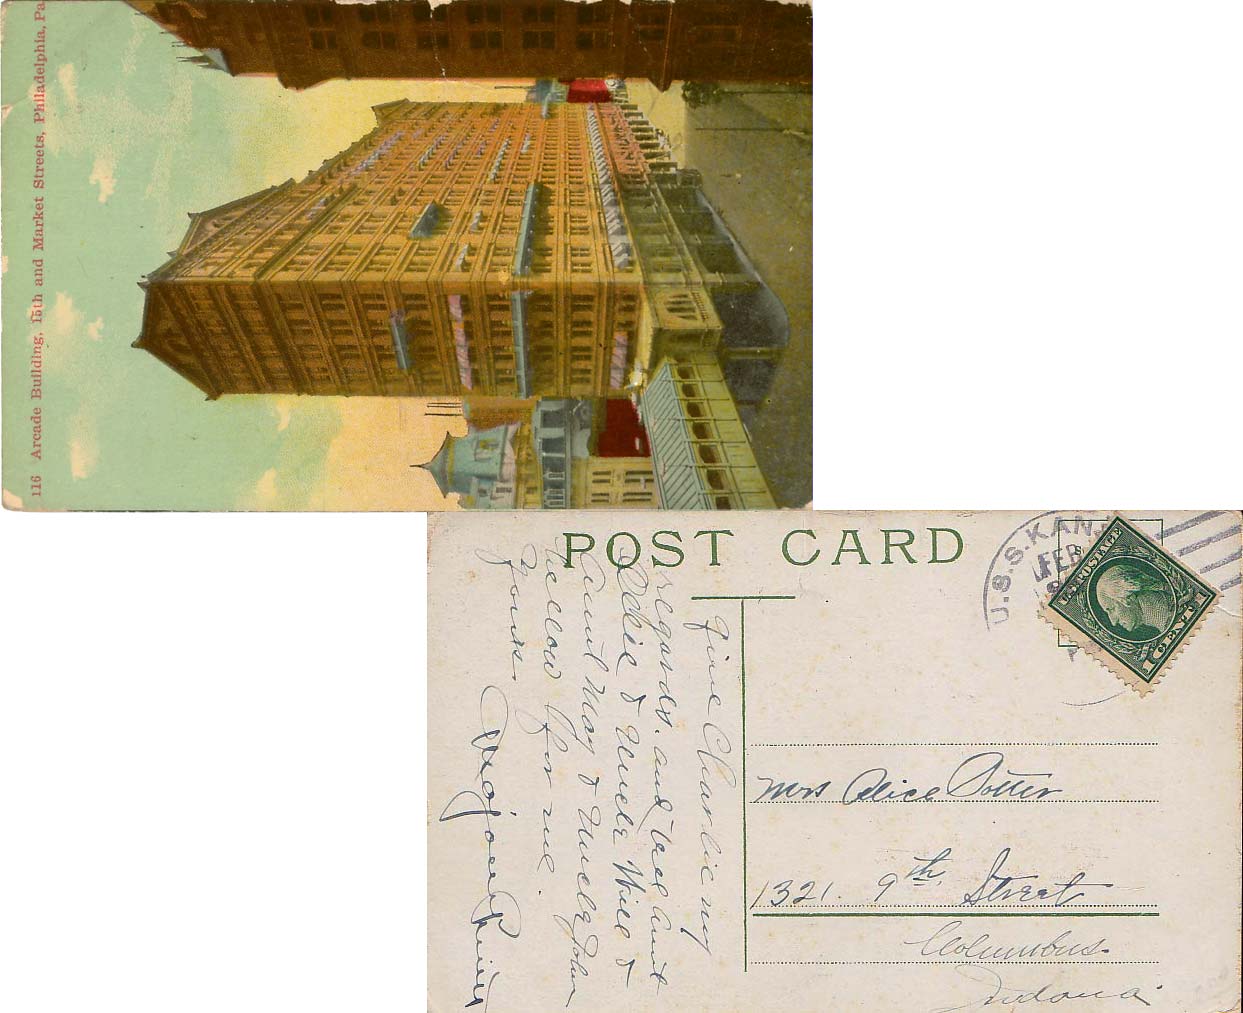 116 Arcade Building, 15th and Market Streets, Philadelphia, Pa
POST CARD
U.S.S. KAN
FEB
U.S. POSTAGE
1 CENT 1
Give Charlie my
regards. and tell Aunt
& Uncle Will &
Aunt May & Uncle John
hellow for me.
Yours
Mrs Alice Potter
1321. 9th. Street
Columbus.
Indana